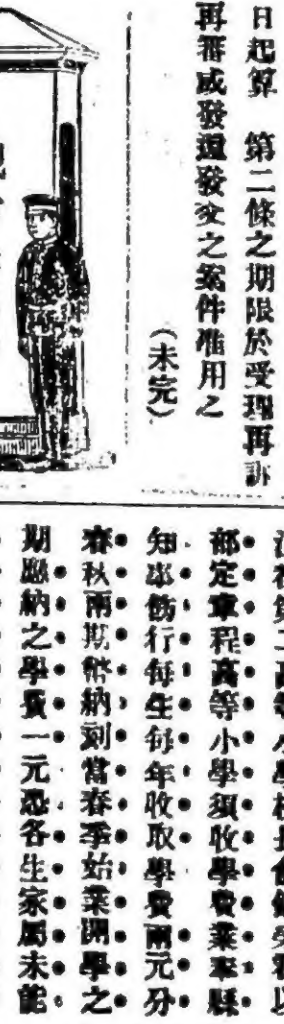 日起算　第二條之期限於受理再訴
再審或發還發交之案件准用之
（未完）
部定章程高等小學須收學費業奉縣
知事飭行每生每年收取學費兩元分
春秋兩期繳納刻當春季始業開學之
期應納之學費一元恐各生家屬未能